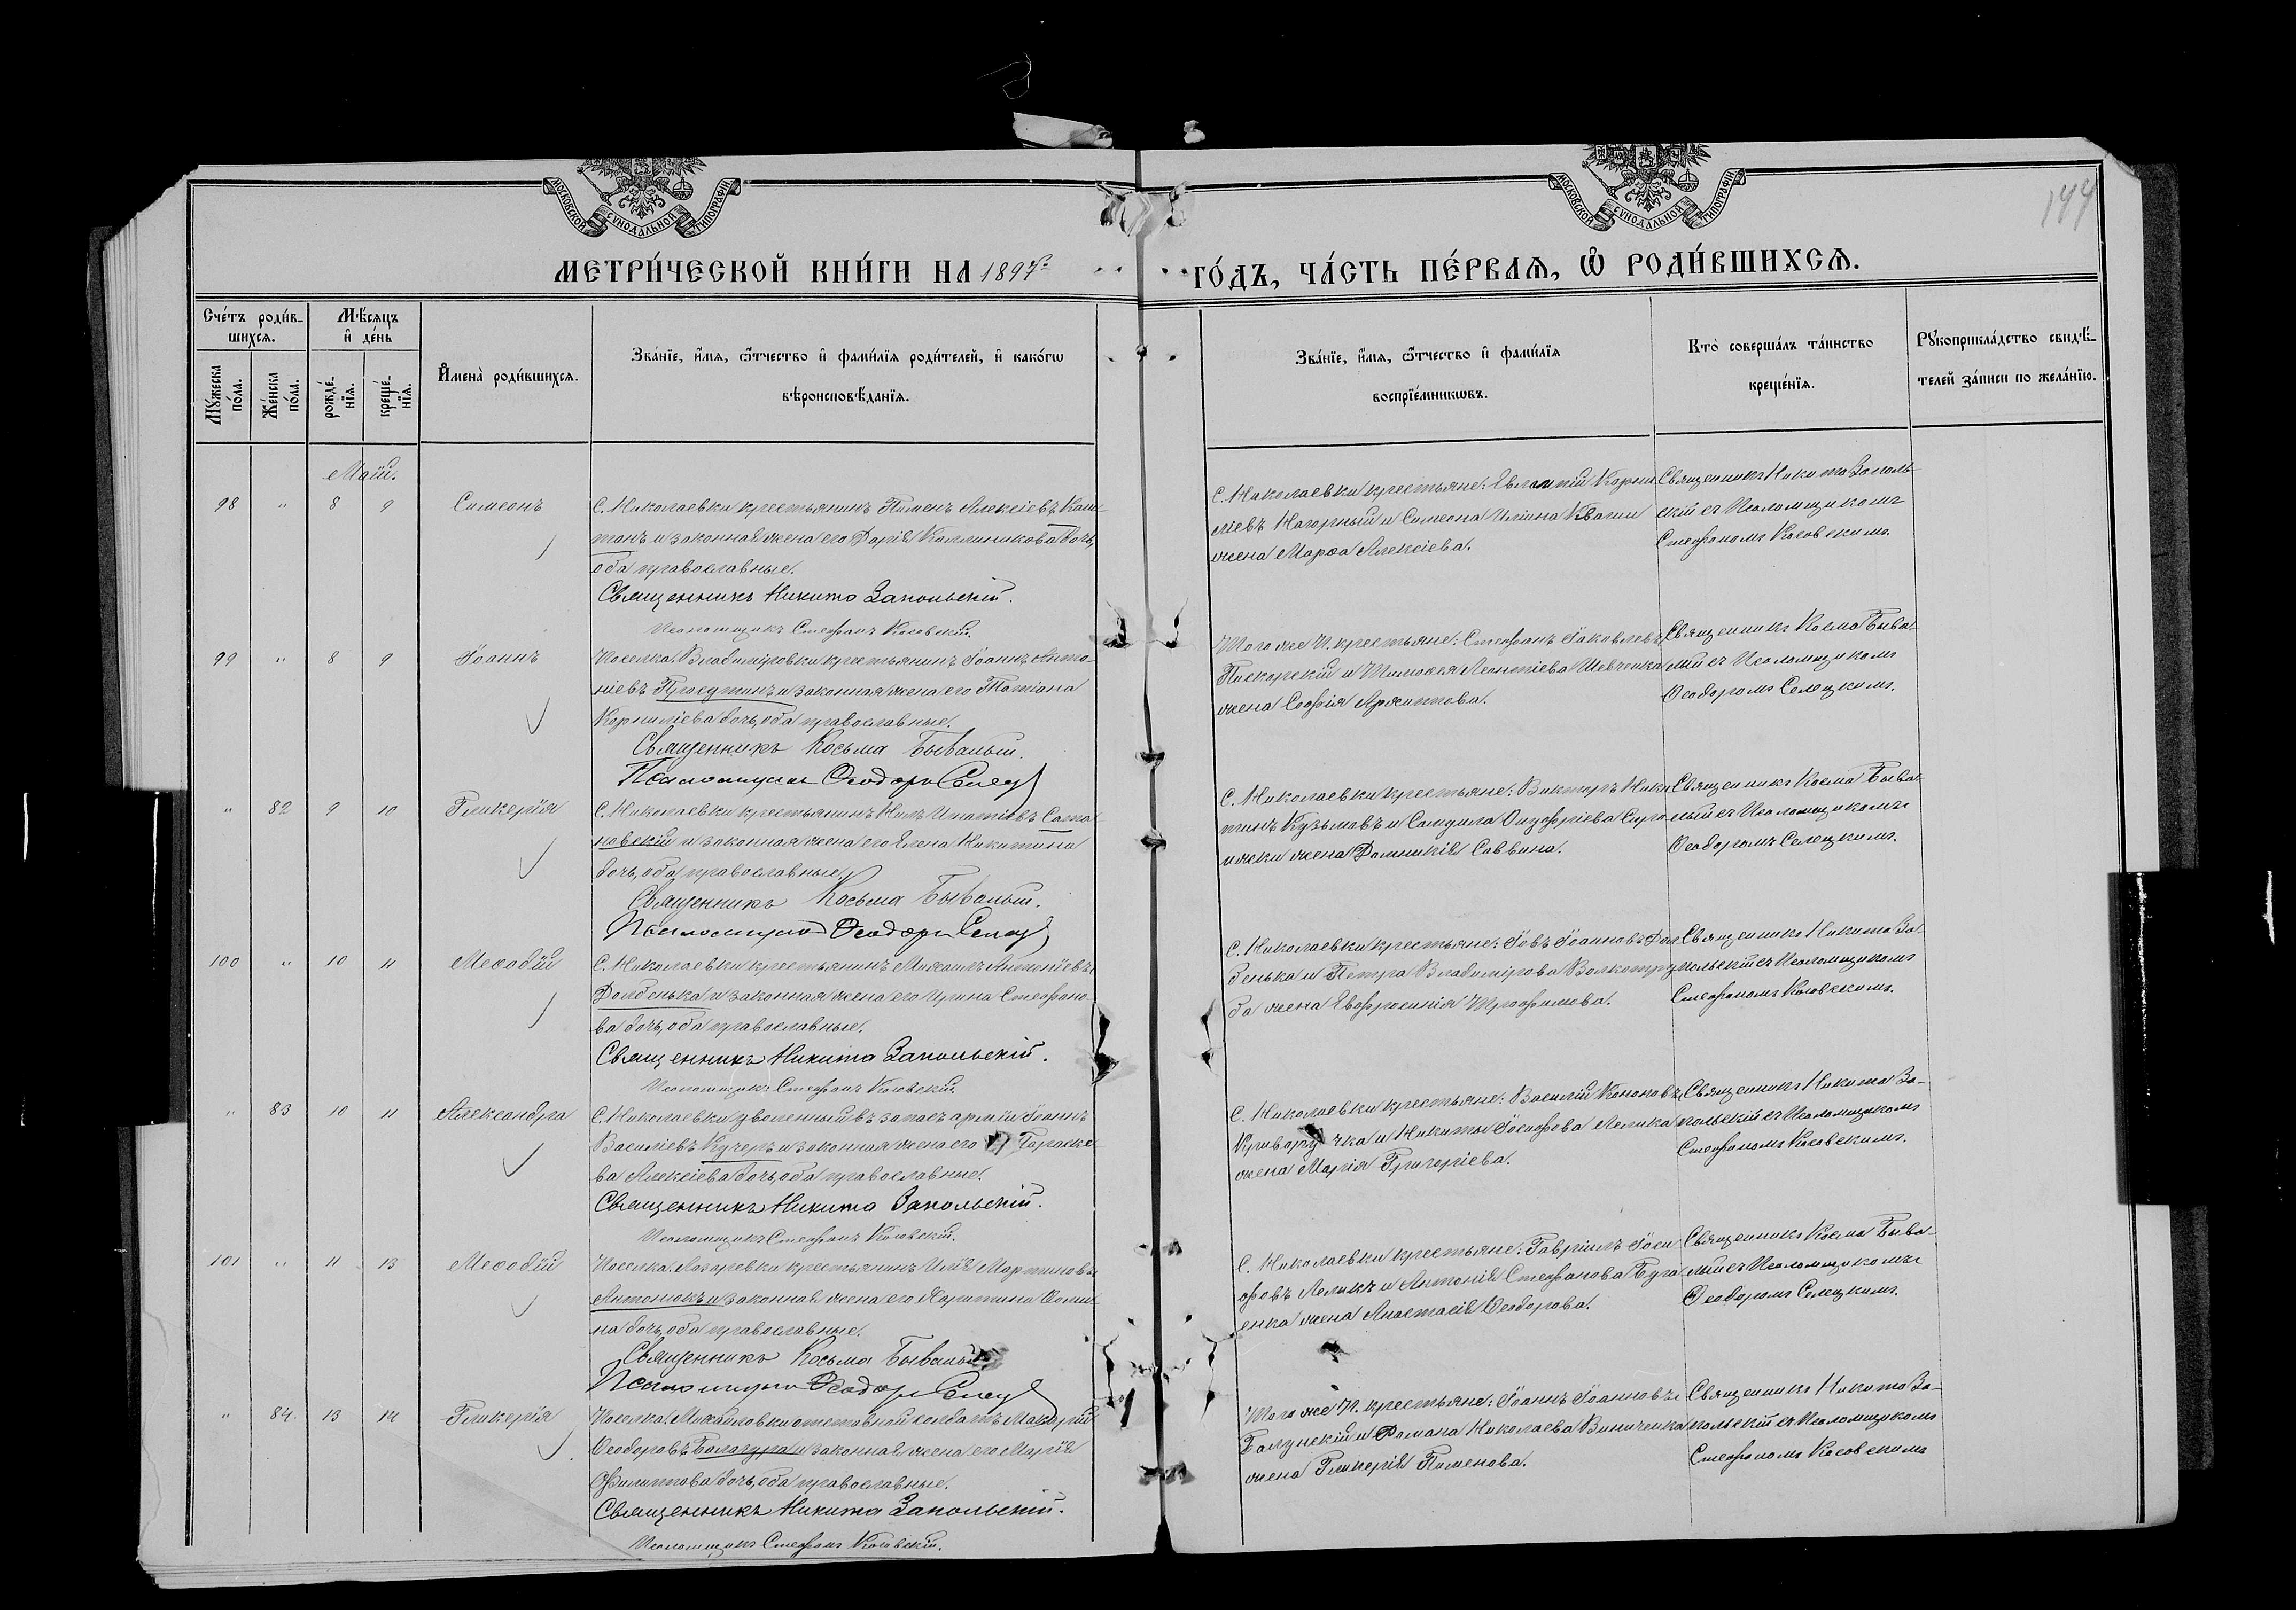 144
МОСКОВСКОЙ СУНОДАЛЬНОЙ ТИПОГРАФІИ
МОСКОВСКОЙ СУНОДАЛЬНОЙ ТИПОГРАФІИ
МЕТРИ́ЧЕСКОЙ КНИ́ГИ НА 1897
ГО́ДЪ, ЧА́СТЬ ПЕ́РВАѦ, Ѡ РОДИ́ВШИХСѦ.
Сче́тъ роди́в-
шихсѧ.
Мѣ́сѧцъ
и де́нь
Мꙋ́жеска
по́ла.
Же́нска
по́ла.
рожде́-
нїѧ.
креще́-
нїѧ.
И҆мена̀ роди́вшихсѧ.
Зва́нїе, и҆́мѧ, ѻ҆́тчество и҆ фами́лїѧ роди́телей, и҆ како́гѡ
вѣроисповѣ́данїѧ.
Зва́нїе, и҆́мѧ, ѻ҆́тчество и҆ фами́лїѧ
воспрїе́мникѡвъ.
Кто̀ соверша́лъ та́инство
креще́нїѧ.
Рꙋкоприкла́дство свидѣ́-
телей за́писи по жела́нїю.
Май.
98 " 8 9 Симеонъ
С. Николаевки крестьянинъ Пименъ Алексіевъ Каш-
танъ и законная жена его Дарія Каллиникова дочь,
оба православные.
Священникъ Никита Запольскій.
Псаломщикъ Стефанъ Косовскій.
С. Николаевки крестьяне: Евлампій Корни
ліевъ Нагорный и Симеона Иліина Кваши
жена Марѳа Алексіева.
Священникъ Никита Заполь-
скій съ Псаломщикомъ
Стефаномъ Косовскимъ.
99 " 8 9 Іоаннъ
Поселка Владиміровки крестьянинъ Іоаннъ Анто-
ніевъ и законная жена его Татіана
Корниліева дочь, оба православные.
Священникъ Косьма Бывалый.
Псаломщикъ Ѳеодоръ Селец
Того же П. крестьяне: Стефанъ Іаковлевъ
Пискорскій и Тимоѳея Леонтіева Шевченка
жена Софія Архиппова.
Священникъ Косма Быва-
лый съ Псаломщикомъ
Ѳеодоромъ Селецкимъ.
" 82 9 10 Гликерія
С. Николаевки крестьянинъ Нилъ Игнатіевъ Сата
новскій и законная жена его Елена Никитина
дочь, оба православные.
Священникъ Косьма Бывалый.
Псаломщикъ Ѳеодоръ Селец
С. Николаевки крестьяне: Викторъ Ники
тинъ Кузьмовъ и Самуила Онуфріева
жена Домникія Саввина.
Священникъ Косма Быва-
лый съ Псаломщикомъ
Ѳеодоромъ Селецкимъ.
100 " 10 11 Меѳодій
С. Николаевки крестьянинъ Михаилъ Антоніевъ
Долбенька и законная жена его Ирина Стефано-
ва дочь, оба православные.
Священникъ Никита Запольскій.
Псаломщикъ Стефанъ Косовскій.
С. Николаевки крестьяне: Іовъ Іоанновъ Дол
бенька и Петра Владимірова Волкотру
ба жена Евфросинія Трофимова.
Священникъ Никита За-
польскій съ Псаломщикомъ
Стефаномъ Косовскимъ.
" 83 10 11 Александра
С. Николаевки уволенный въ запасъ арміи Іоаннъ
Василіевъ Кучеръ и законная жена его Параске
ва Алексіева дочь, оба православные.
Священникъ Никита Запольскій.
Псаломщикъ Стефанъ Косовскій.
С. Николаевки крестьяне: Василій Кононовъ
Криворучка и Никиты Іосифова Лелика
жена Марія Григоріева.
Священникъ Никита За-
польскій съ Псаломщикомъ
Стефаномъ Косовскимъ.
101 " 11 13 Меѳодій
Поселка Лазаровки крестьянинъ Илія Мартиновъ
Антонюкъ и законная жена его Харитина Ѳоми-
на дочь, оба православные.
Священникъ Косьма Бывалый
Псаломщикъ Ѳеодоръ Селец
С. Николаевки крестьяне: Гавріилъ Іоси
фовъ Леликъ и Антонія Стефанова Буга
енка жена Анастасія Ѳеодорова.
Священникъ Косма Быва-
лый съ Псаломщикомъ
Ѳеодоромъ Селецкимъ.
" 84. 13 14 Гликерія
Поселка Михайловки отставной солдатъ Макарій
Ѳеодоровъ Балагура и законная жена его Марія
Филиппова дочь, оба православные.
Священникъ Никита Запольскій.
Псаломщикъ Стефанъ Косовскій.
Того же П. крестьяне: Іоаннъ Іоанновъ
и Романа Николаева Виниченка
жена Гликерія Пименова.
Священникъ Никита За-
польскій съ Псаломщикомъ
Стефаномъ Косовскимъ